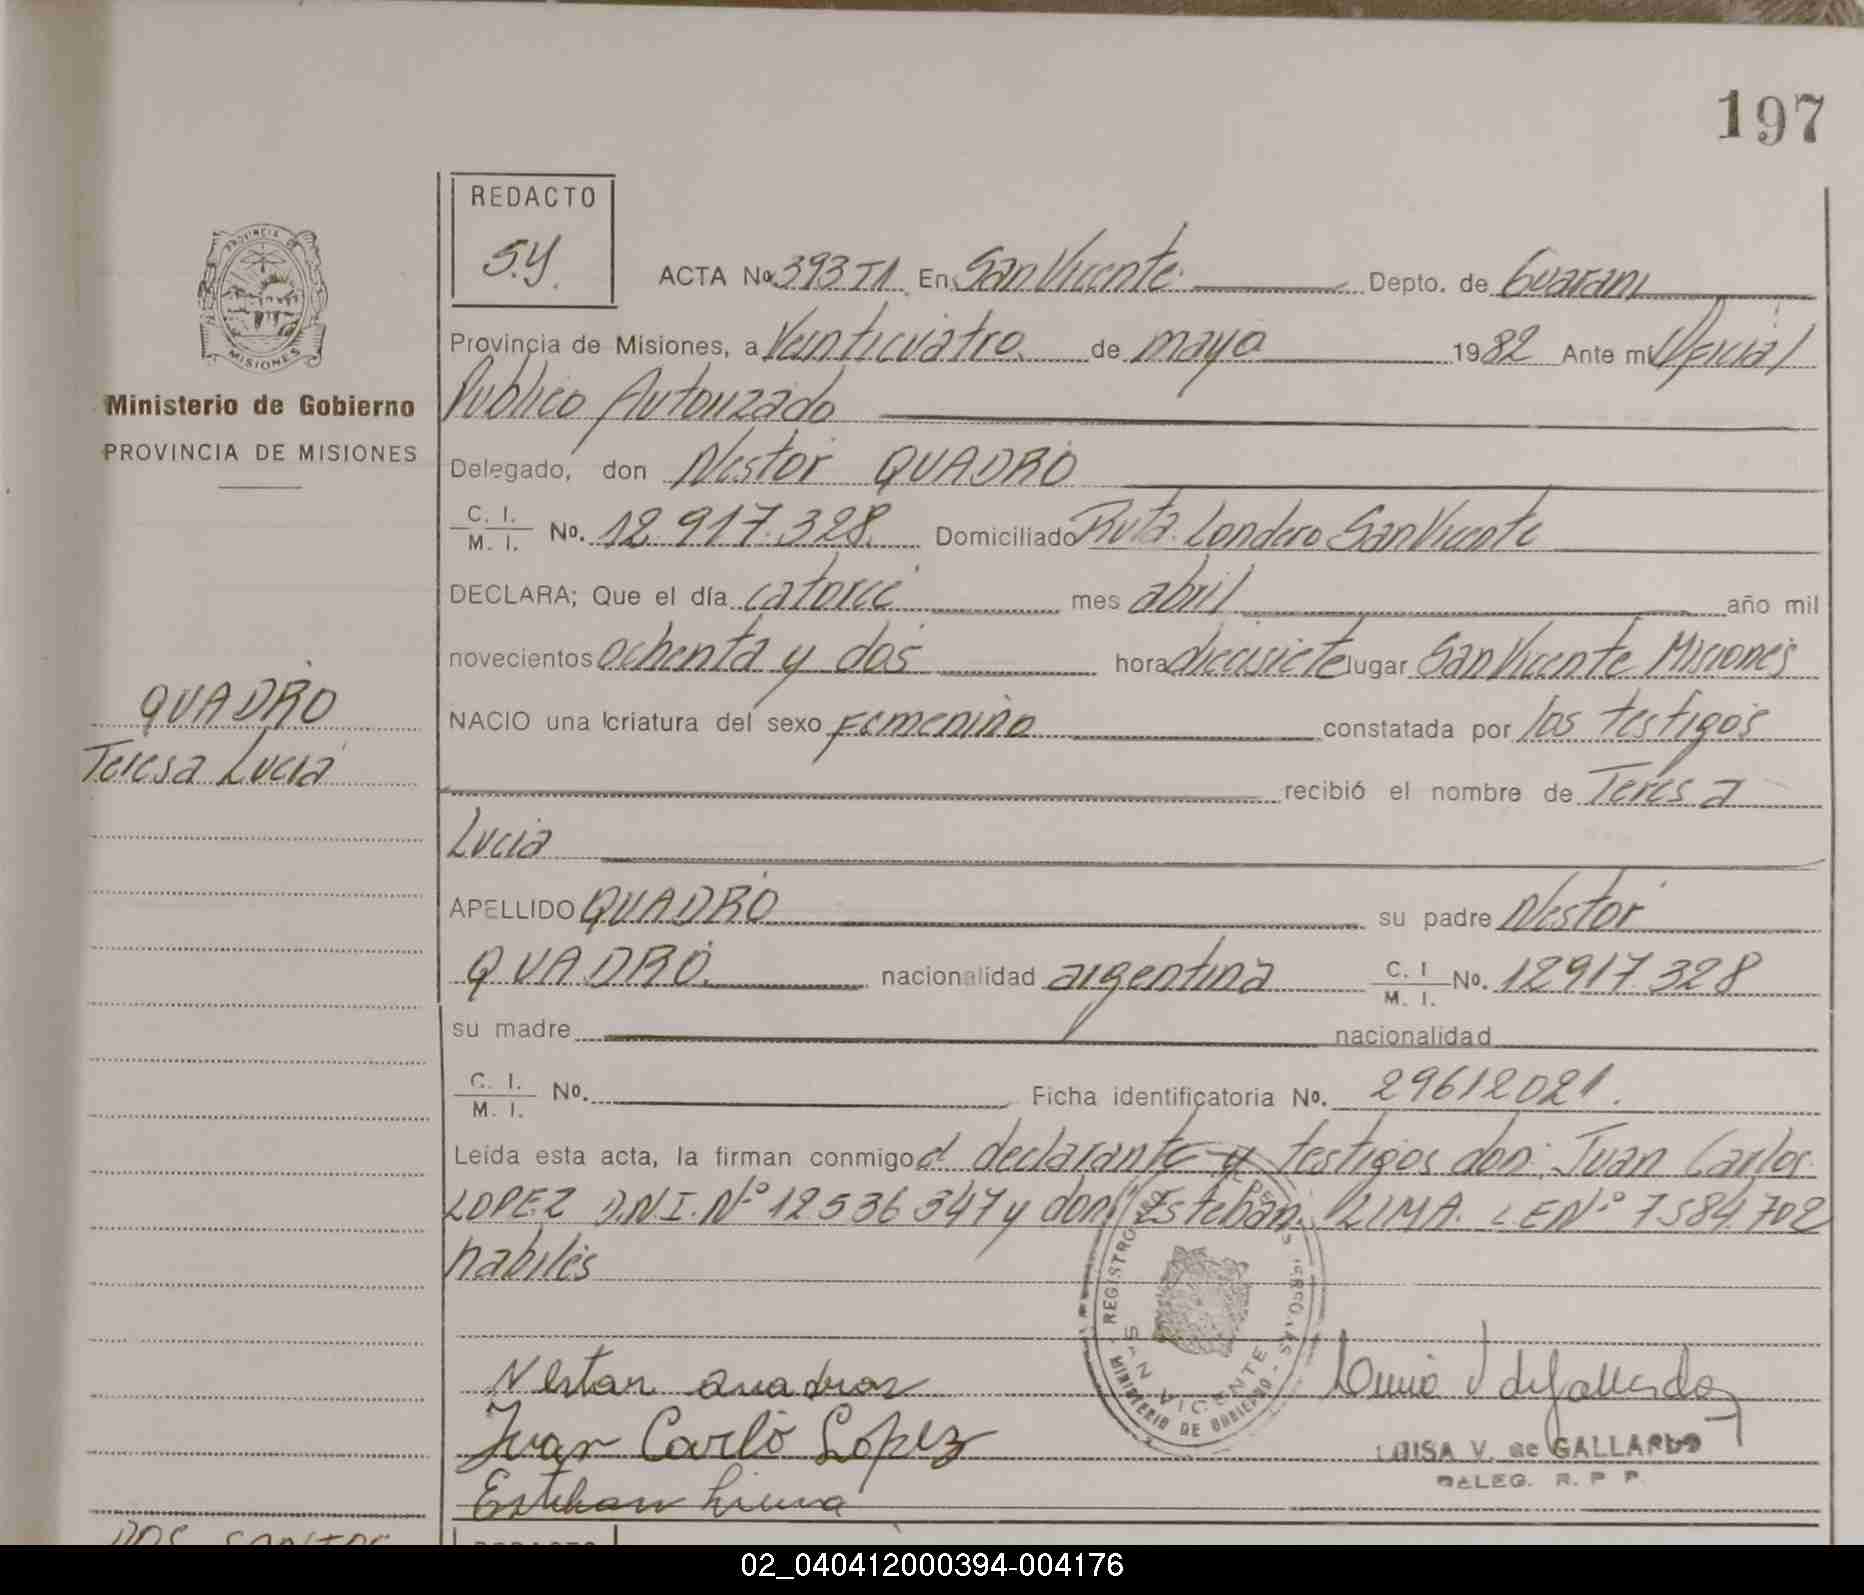 197
REDACTO
S.Y.
PROVINCIA DE
MISIONES
Ministerio de Gobierno
PROVINCIA DE MISIONES
QUADRO
Teresa Lucia
ACTA No 393 T1 En San Vicente Depto. de Guarani
Provincia de Misiones, a Veinticuatro de mayo 1982 Ante mi Oficial
Publico Autorizado
Delegado, don Nestor QUADRO
C. I.
M. I. No. 12.917.328. Domiciliado Ruta Londero San Vicente
DECLARA; Que el día catorce mes abril año mil
novecientos ochenta y dos hora diecisiete lugar San Vicente Misiones
NACIO una criatura del sexo femenino constatada por los testigos
recibió el nombre de Teresa
Lucia
APELLIDO QUADRO su padre Nestor
QUADRO. nacionalidad argentina C. I. M. I. No. 12917.328
su madre nacionalidad
C. I.
M. I. No. Ficha identificatoria No. 29612021.
Leída esta acta, la firman conmigo el declarante y testigos don: Juan Carlos
LOPEZ D.N.I. Nº 12536347 y don Esteban LIMA. L.E Nº 7584.702
habiles
REGISTRO
SAN VICENTE
MINISTERIO DE GOBIERNO
Nestor Quadros
Juan Carlo Lopez
Esteban Lima
LUISA V. de GALLARDO
DELEG. R. P. P.
DOS SANTOS
REDACTO
02_040412000394-004176